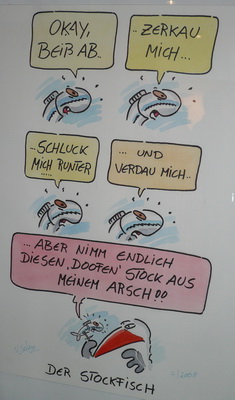 OKAY,
BEIß AB..
..ZERKAU
MICH...
...SCHLUCK
MICH RUNTER
.....
... UND
VERDAU MICH..
...ABER NIMM ENDLICH
DIESEN ‚DOOFEN' STOCK AUS
MEINEM ARSCH!!
DER STOCKFISCH